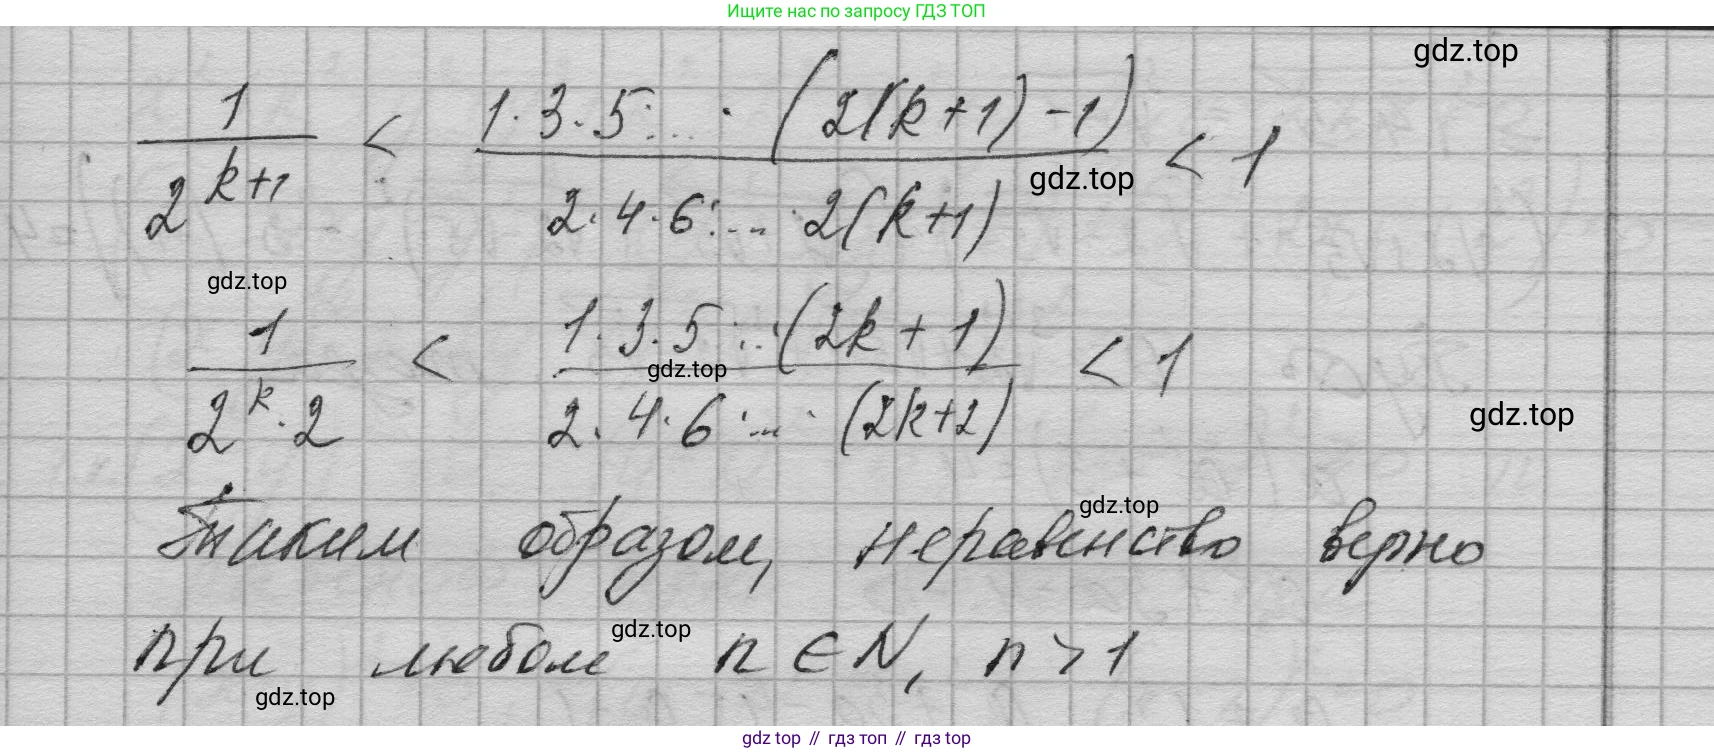 Ищите нас по запросу ГДЗ ТОП
gdz.top
1/2^(k+1) < (1·3·5·...·(2(k+1)-1))/(2·4·6·...·2(k+1)) < 1
gdz.top
gdz.top
1/(2^k·2) < (1·3·5·...·(2k+1))/(2·4·6·...·(2k+2)) < 1
gdz.top
gdz.top
gdz.top
Таким образом, неравенство верно
gdz.top
при любом n ∈ N, n > 1
gdz.top
gdz top // гдз топ // gdz top